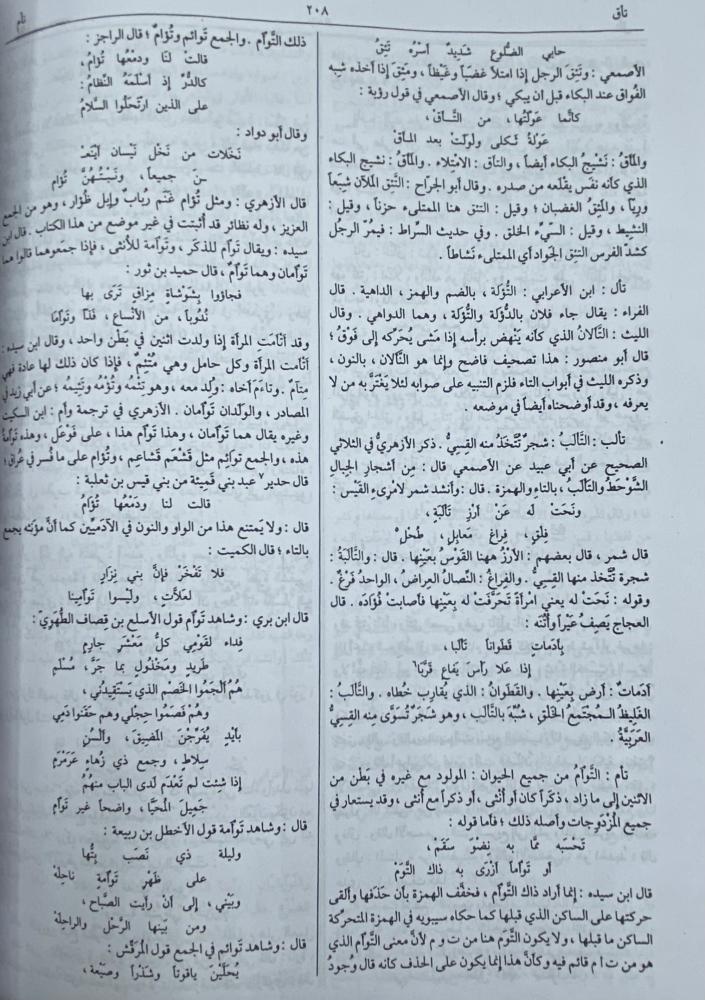 تأق
٢٠٨
تأم
حابي الضلوع شديد أسره تئق
الأصمعي : وتئق الرجل إذا امتلأ غضباً وغيظاً ، ومئق إذا أخذه شبه
الفواق عند البكاء قبل أن يبكي ؛ وقال الأصمعي في قول رؤبة :
كأنما عولتها ، من التأق ،
عولة ثكلى ولولت بعد المأق
والمأق : نشيج البكاء أيضاً ، والتأق : الامتلاء . والمأق : نشيج البكاء
الذي كأنه نفس يقلعه من صدره . وقال أبو الجراح : التئق الملآن شبعاً
ورياً ، والمئق الغضبان ؛ وقيل : التئق هنا الممتلىء حزناً ، وقيل :
النشيط ، وقيل : السيّىء الخلق . وفي حديث السراط : فيمرّ الرجل
كشدّ الفرس التئق الجواد أي الممتلىء نشاطاً .
تأل : ابن الأعرابي : التُّؤَلة ، بالضم والهمز ، الداهية . قال
الفراء : يقال جاء فلان بالدُّؤَلة والتُّؤَلة ، وهما الدواهي . وقال
الليث : التألان الذي كأنه ينهض برأسه إذا مشى يحركه إلى فوق ؛
قال أبو منصور : هذا تصحيف فاضح وإنما هو النألان ، بالنون ،
وذكره الليث في أبواب التاء فلزم التنبيه على صوابه لئلا يغترّ به من لا
يعرفه ، وقد أوضحناه أيضاً في موضعه .
تألب : التَّأْلَب : شجر تُتَّخذ منه القسيّ . ذكر الأزهريّ في الثلاثي
الصحيح عن أبي عبيد عن الأصمعي قال : من أشجار الجبال
الشَّوْحَط والتَّأْلَب ، بالتاء والهمزة . قال : وأنشد شمر لامرىء القيس :
ونَحَتْ له عن أرز تألبة ،
فلق ، فراغ معابل ، طحل
قال شمر ، قال بعضهم : الأرز ههنا القوس بعينها . قال : والتألبة :
شجرة تتخذ منها القسيّ . والفراغ : النصال العراض ، الواحد فرغ .
وقوله : نحت له يعني امرأة تحرّفت له بعينها فأصابت فؤاده . قال
العجاج يصف عيراً وأتنه :
بأدمات قطواناً تألبا ،
إذا علا رأس يفاع قرّبا
أدمات : أرض بعينها . والقطوان : الذي يقارب خطاه . والتألب :
الغليظ المجتمع الخلق ، شبّه بالتألب ، وهو شجر تسوّى منه القسيّ
العربيّة .
تأم : التَّوْأَم من جميع الحيوان : المولود مع غيره في بطن من
الاثنين إلى ما زاد ، ذكراً كان أو أنثى ، أو ذكراً مع أنثى ، وقد يستعار في
جميع المزدوجات وأصله ذلك ؛ فأما قوله :
تحسبه مما به نضو سقم ،
أو توأماً أزرى به ذاك التَّوَم
قال ابن سيده : إنما أراد ذاك التوأم ، فخفف الهمزة بأن حذفها وألقى
حركتها على الساكن الذي قبلها كما حكاه سيبويه في الهمزة المتحركة
الساكن ما قبلها ، ولا يكون التَّوَم هنا من ت و م لأن معنى التوأم الذي
هو من ت ا م قائم فيه وكأن هذا إنما يكون على الحذف كأنه قال وُجودُ
ذلك التوأم . والجمع توائم وتؤام ؛ قال الراجز :
قالت لنا ودمعها تؤام ،
كالدرّ إذ أسلمه النظام :
على الذين ارتحلوا السلام
وقال أبو دواد :
نخلات من نخل نيسان أينعـ
ـن جميعاً ، ونبتهنّ تؤام
قال الأزهري : ومثل تؤام غنم رباب وإبل ظؤار ، وهو من الجمع
العزيز ، وله نظائر قد أثبتت في غير موضع من هذا الكتاب . قال ابن
سيده : ويقال توأم للذكر ، وتوأمة للأنثى ، فإذا جمعوهما قالوا هما
توأمان وهما توأم ، قال حميد بن ثور :
فجاؤوا بشوشاة مزاق ترى بها
ندوباً ، من الأنساع ، فذّاً وتوأما
وقد أتأمت المرأة إذا ولدت اثنين في بطن واحد ، وقال ابن سيده :
أتأمت المرأة وكل حامل وهي متئم ، فإذا كان ذلك لها عادة فهي
متآم . وتاءم أخاه : ولد معه ، وهو تئمه وتؤمه وتئيمه ؛ عن أبي زيد في
المصادر ، والولدان توأمان . الأزهري في ترجمة وأم : ابن السكيت
وغيره يقال هما توأمان ، وهذا توأم هذا ، على فوعل ، وهذه توأمة
هذه ، والجمع توائم مثل قشعم قشاعم ، وتؤام على ما فسر في عراق ؛
قال حدير٧ عبد بني قميئة من بني قيس بن ثعلبة :
قالت لنا ودمعها تؤام
قال : ولا يمتنع هذا من الواو والنون في الآدميين كما أنّ مؤنثه يجمع
بالتاء ؛ قال الكميت :
فلا تفخر فإنّ بني نزار
لعلّات ، وليسوا توأمينا
قال ابن بري : وشاهد توأم قول الأسلع بن قصاف الطهوي :
فداء لقومي كلّ معشر جارم
طريد ومخذول بما جرّ ، مسلم
هُمُ ألجموا الخصم الذي يستقيدني ،
وهم فصموا حجلي وهم حقنوا دمي
بأيد يفرّجن المضيق ، وألسن
سلاط ، وجمع ذي زهاء عرمرم
إذا شئت لم تعدم لدى الباب منهم
جميل المحيّا ، واضحاً غير توأم
قال : وشاهد توأمة قول الأخطل بن ربيعة :
وليلة ذي نصب بتّها
على ظهر توأمة ناحله
وبيني ، إلى أن رأيت الصباح ،
ومن بينها الرحل والراحله
قال : وشاهد توائم في الجمع قول المرقّش :
يحلّين ياقوتاً وشذراً وصيغة ،